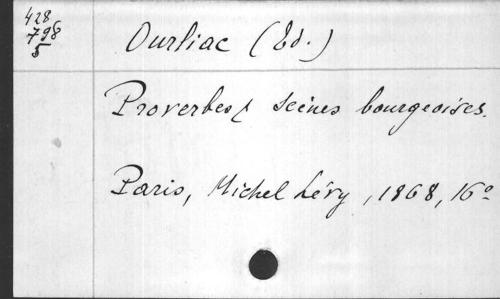 428
798
5
Ourliac (Ed.)
Proverbes & scènes bourgeoises.
Paris, Michel Lévy, 1868, 16º